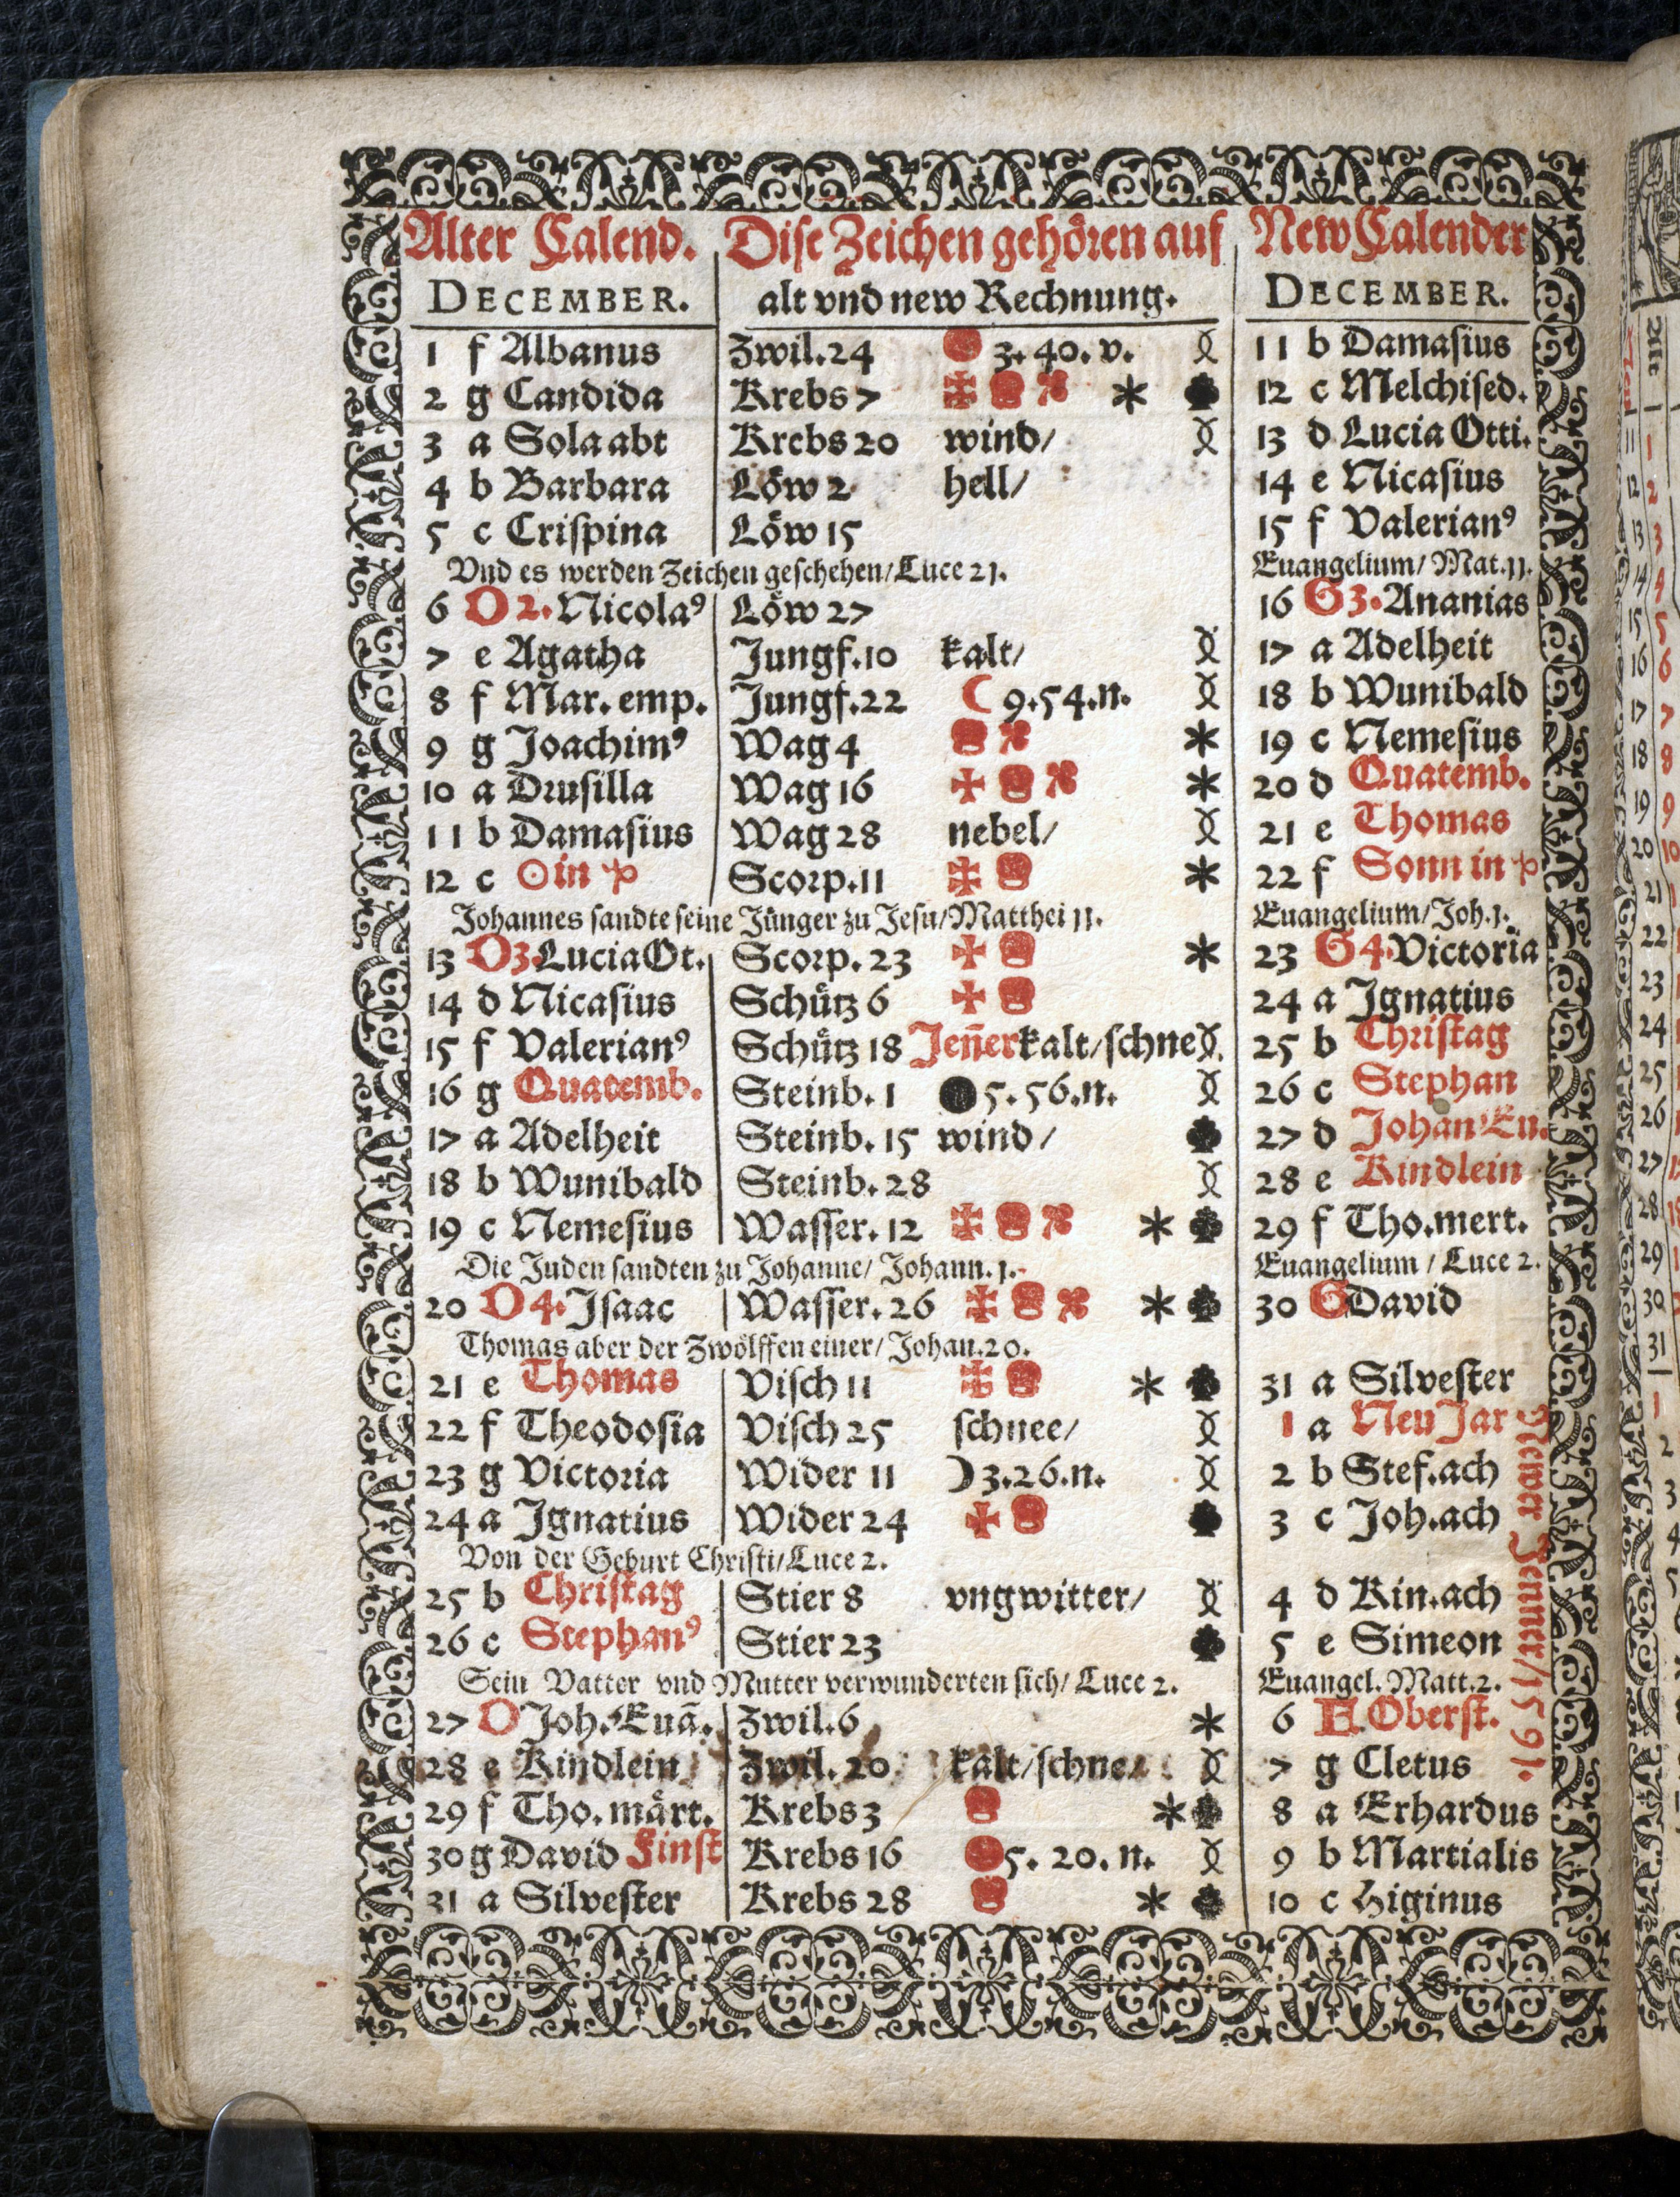 Alter Calend. Dise Zeichen gehören auf New Calender
DECEMBER. alt vnd new Rechnung. DECEMBER.
1 f Albanus Zwil. 24 3. 40. v. 11 b Damasius
2 g Candida Krebs 7 12 c Melchised.
3 a Sola abt Krebs 20 wind/ 13 d Lucia Otti.
4 b Barbara Löw 2 hell/ 14 e Nicasius
5 c Crispina Löw 15 15 f Valerianꝰ
Vnd es werden Zeichen geschehen/ Luce 21. Euangelium/ Mat. 11.
6 D 2. Nicolaꝰ Löw 27 16 G 3. Ananias
7 e Agatha Jungf. 10 kalt/ 17 a Adelheit
8 f Mar. emp. Jungf. 22 ☾ 9. 54. n. 18 b Wunibald
9 g Joachimꝰ Wag 4 19 c Nemesius
10 a Drusilla Wag 16 20 d Quatemb.
11 b Damasius Wag 28 nebel/ 21 e Thomas
12 c ☉ in ♑ Scorp. 11 22 f Sonn in ♑
Johannes sandte seine Jünger zu Jesu/ Matthei 11. Euangelium/ Joh. 1.
13 D 3. Lucia Ot. Scorp. 23 23 G 4. Victoria
14 d Nicasius Schütz 6 24 a Ignatius
15 f Valerianꝰ Schütz 18 Jeñer kalt/ schne 25 b Christag
16 g Quatemb. Steinb. 1 5. 56. n. 26 c Stephan
17 a Adelheit Steinb. 15 wind/ 27 d Johan Eu.
18 b Wunibald Steinb. 28 28 e Kindlein
19 c Nemesius Wasser. 12 29 f Tho. mert.
Die Juden sandten zu Johanne/ Johann. 1. Euangelium/ Luce 2.
20 D 4. Isaac Wasser. 26 30 G David
Thomas aber der Zwölffen einer/ Johan. 20.
21 e Thomas Visch 11 31 a Silvester
22 f Theodosia Visch 25 schnee/ 1 a Neu Jar
23 g Victoria Wider 11 ☽ 3. 26. n. 2 b Stef. ach
24 a Ignatius Wider 24 3 c Joh. ach
Von der Geburt Christi/ Luce 2.
25 b Christag Stier 8 vngwitter/ 4 d Kin. ach
26 c Stephanꝰ Stier 23 5 e Simeon
Sein Vatter vnd Mutter verwunderten sich/ Luce 2. Euangel. Matt. 2.
27 D Joh. Euã. Zwil. 6 6 F. Oberst.
28 e Kindlein Zwil. 20 kalt/ schne/ 7 g Cletus
29 f Tho. märt. Krebs 3 8 a Erhardus
30 g David Finst Krebs 16 5. 20. n. 9 b Martialis
31 a Silvester Krebs 28 10 c Higinus
Newer Jenner/ 1591.